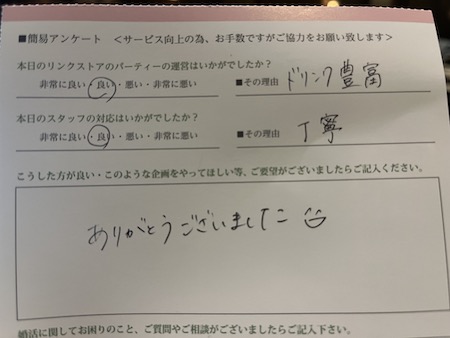 ■簡易アンケート ＜サービス向上の為、お手数ですがご協力をお願い致します＞
本日のリンクストアのパーティーの運営はいかがでしたか？
非常に良い・良い・悪い・非常に悪い ■その理由 ドリンク豊富
本日のスタッフの対応はいかがでしたか？
非常に良い・良い・悪い・非常に悪い ■その理由 丁寧
こうした方が良い・このような企画をやってほしい等、ご要望がございましたらご記入ください。
ありがとうございました
婚活に関してお困りのこと、ご質問やご相談がございましたらご記入下さい。